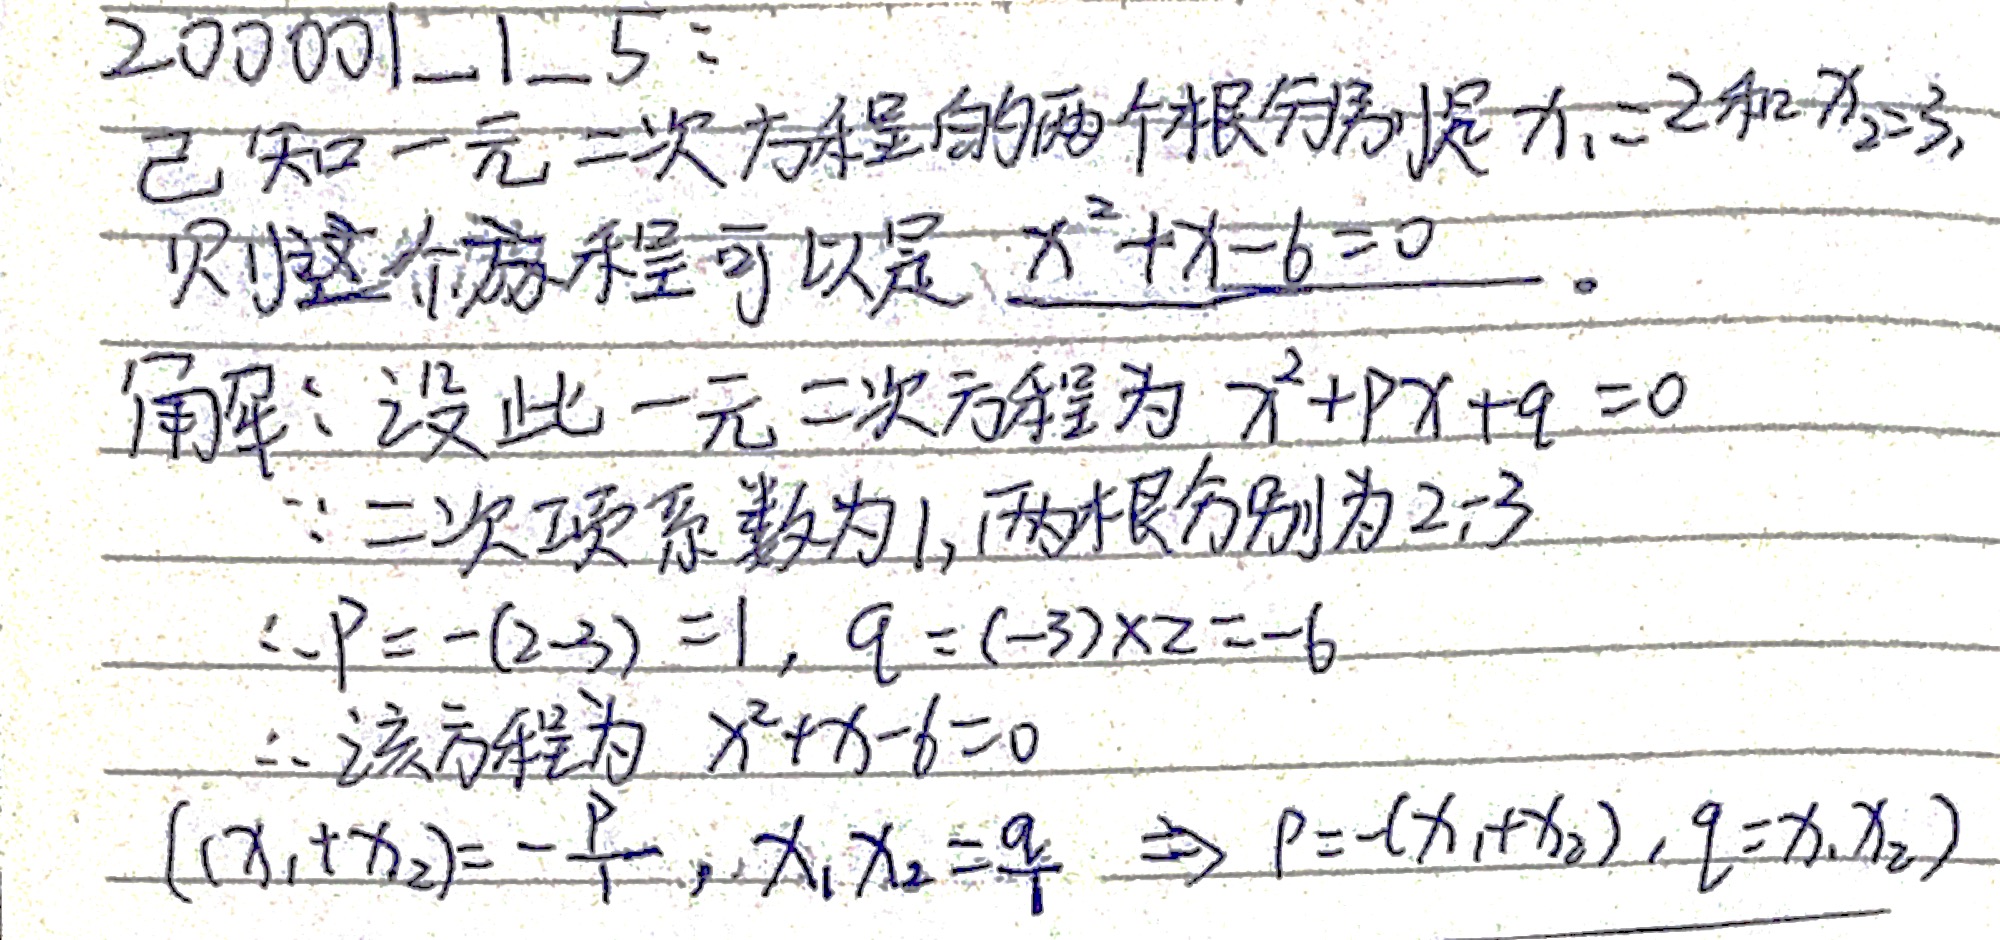 200001_1_5:
已知一元二次方程的两个根分别是 x₁=2和x₂=3,
则这个方程可以是 x²+x-6=0 。
解: 设此一元二次方程为 x²+px+q=0
∵二次项系数为1,两根分别为2,-3
∴P=-(2-3)=1, q=(-3)×2=-6
∴该方程为 x²+x-6=0
((x₁+x₂)=-p/1, x₁x₂=q/1 ⇒ p=-(x₁+x₂), q=x₁x₂)